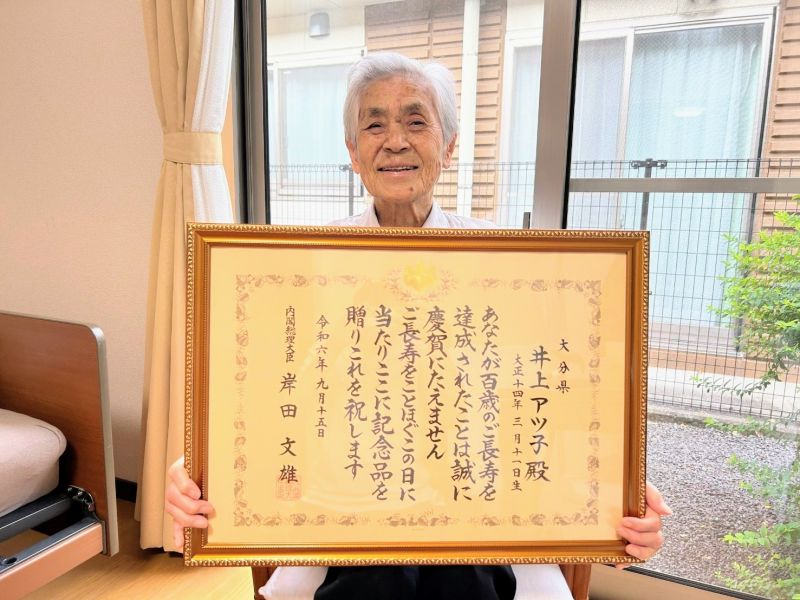 大分県
井上アツ子殿
大正十四年三月十一日生
あなたが百歳のご長寿を
達成されたことは誠に
慶賀にたえません
ご長寿をことほぐこの日に
当たりここに記念品を
贈りこれを祝します
令和六年九月十五日
内閣総理大臣 岸田文雄